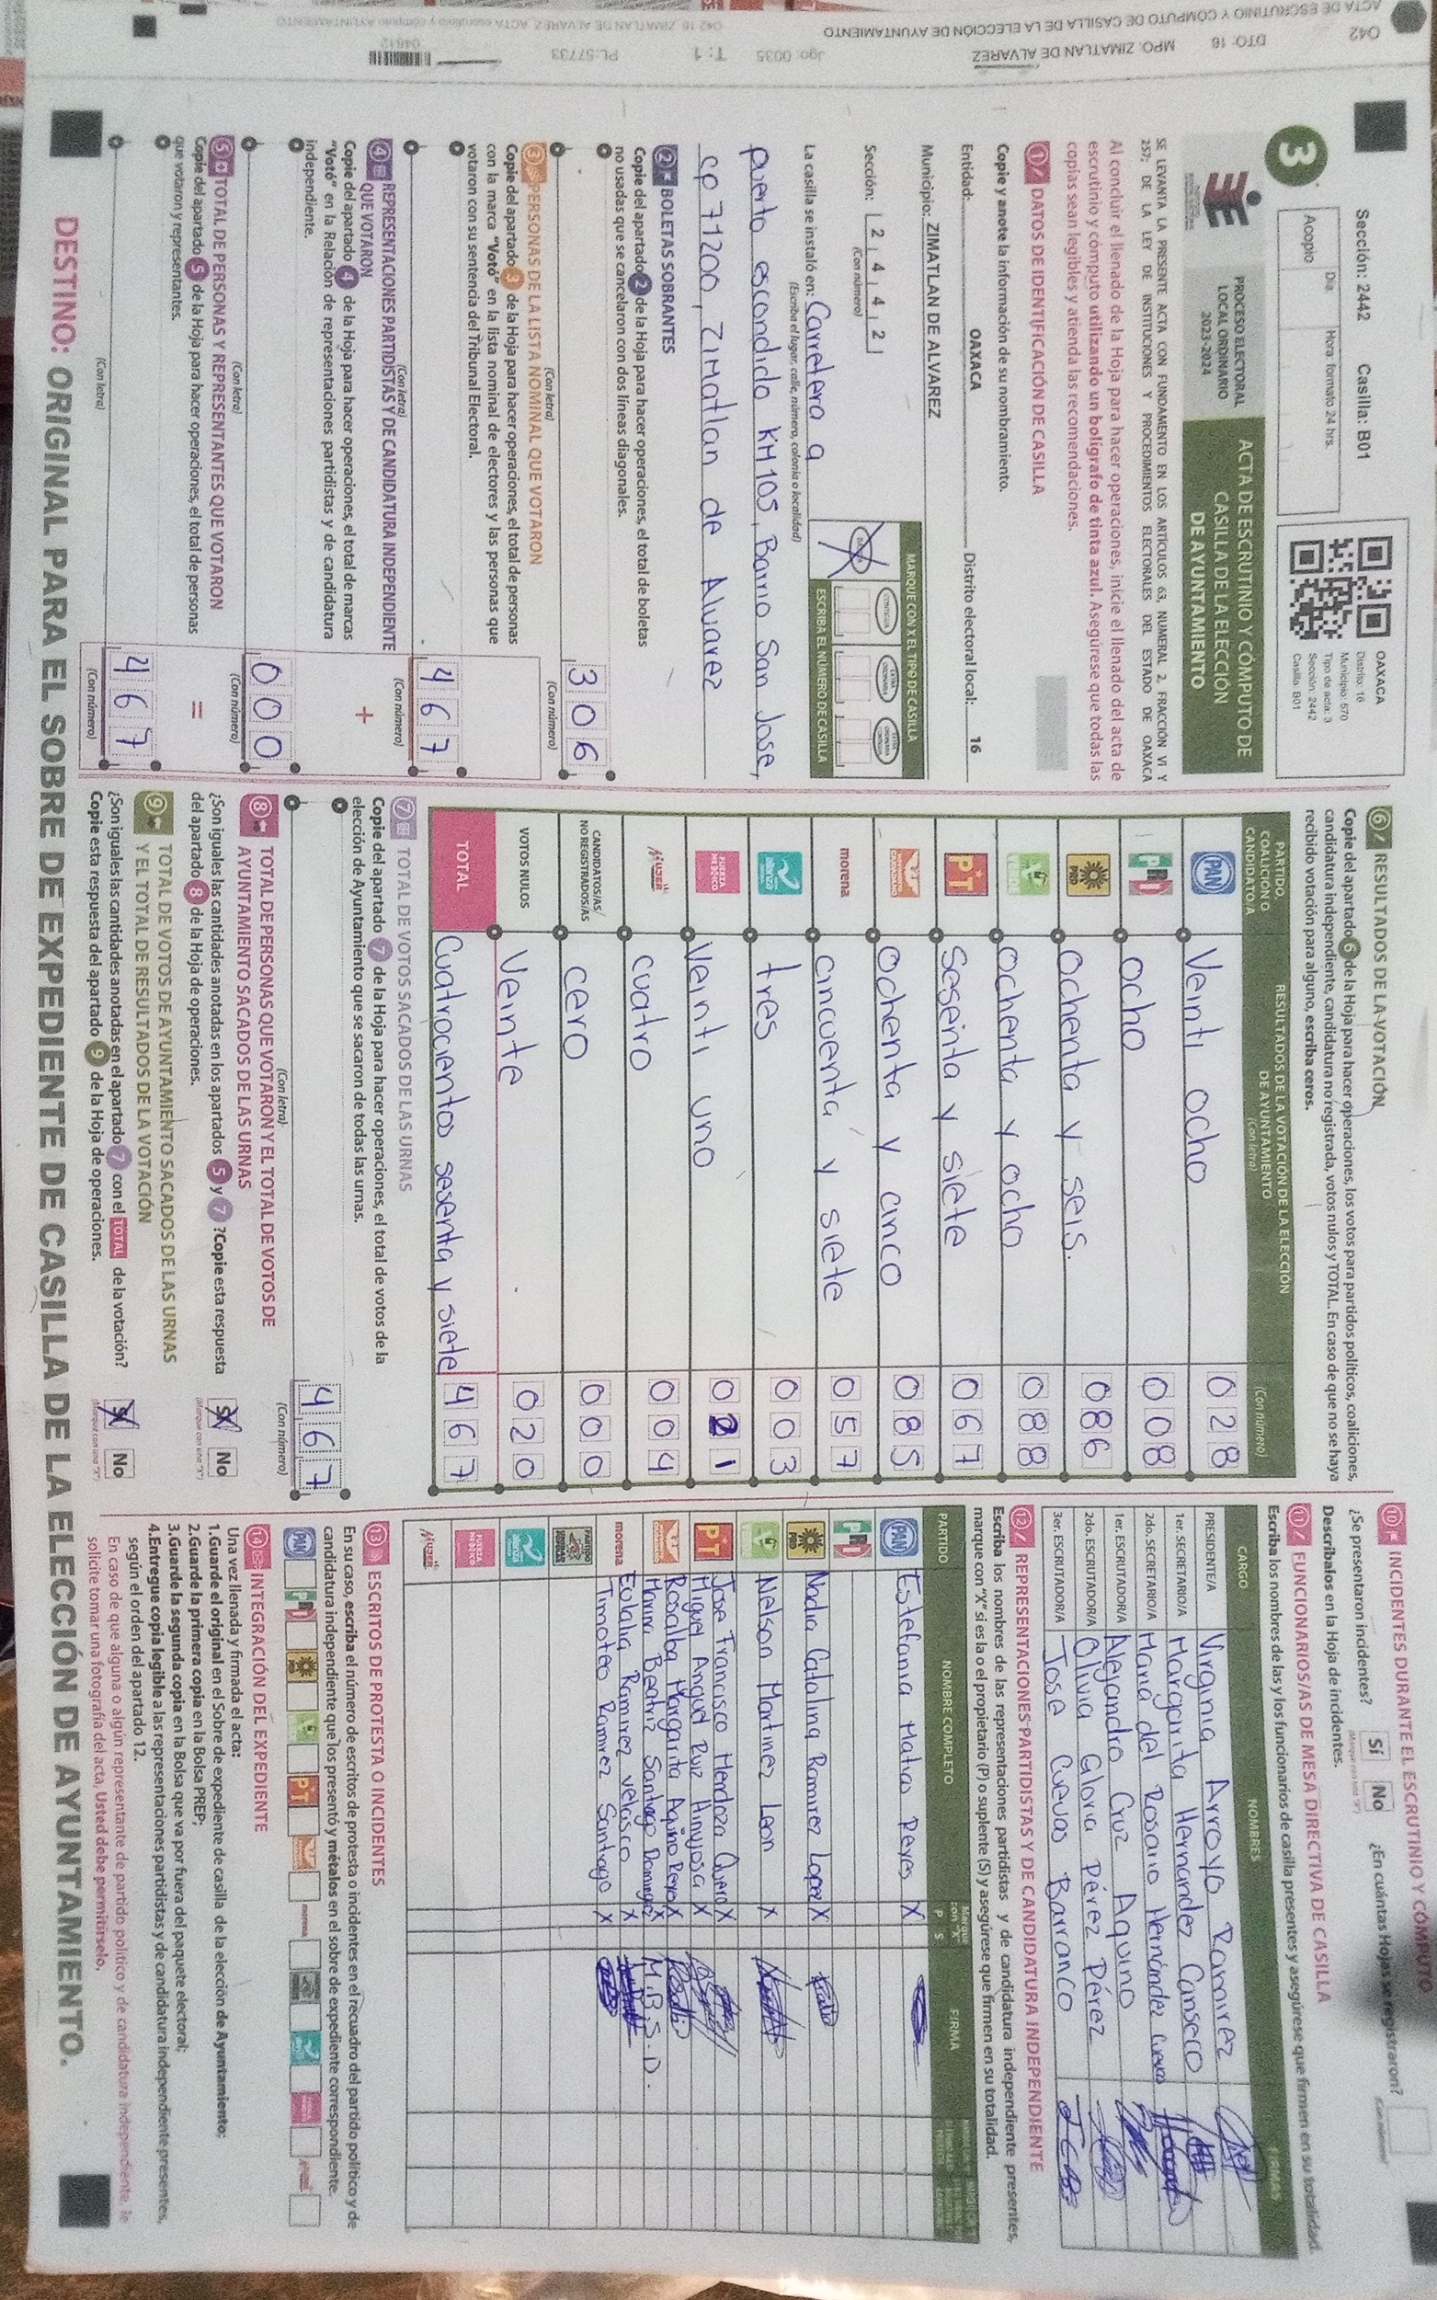 Sección: 2442 Casilla: B01
Día Hora: formato 24 hrs.
Acopio
3
OAXACA
Distrito: 16
Municipio: 570
Tipo de acta: 3
Sección: 2442
Casilla B01
PROCESO ELECTORAL
LOCAL ORDINARIO
2023-2024
ACTA DE ESCRUTINIO Y CÓMPUTO DE
CASILLA DE LA ELECCIÓN
DE AYUNTAMIENTO
SE LEVANTA LA PRESENTE ACTA CON FUNDAMENTO EN LOS ARTÍCULOS 63, NUMERAL 2, FRACCIÓN VI Y
257; DE LA LEY DE INSTITUCIONES Y PROCEDIMIENTOS ELECTORALES DEL ESTADO DE OAXACA
Al concluir el llenado de la Hoja para hacer operaciones, inicie el llenado del acta de
escrutinio y cómputo utilizando un bolígrafo de tinta azul. Asegúrese que todas las
copias sean legibles y atienda las recomendaciones.
1 DATOS DE IDENTIFICACIÓN DE CASILLA
Copie y anote la información de su nombramiento.
Entidad: OAXACA Distrito electoral local: 16
Municipio: ZIMATLAN DE ALVAREZ
Sección: 2 4 4 2
(Con número)
MARQUE CON X EL TIPO DE CASILLA
ESCRIBA EL NÚMERO DE CASILLA
La casilla se instaló en: Carretera a
(Escriba el lugar, calle, número, colonia o localidad)
puerto escondido KM 105, Barrio San Jose,
cp 71200, Zimatlan de Alvarez
2 BOLETAS SOBRANTES
Copie del apartado 2 de la Hoja para hacer operaciones, el total de boletas
no usadas que se cancelaron con dos líneas diagonales.
306
(Con letra) (Con número)
3 PERSONAS DE LA LISTA NOMINAL QUE VOTARON
Copie del apartado 3 de la Hoja para hacer operaciones, el total de personas
con la marca "Votó" en la lista nominal de electores y las personas que
votaron con su sentencia del Tribunal Electoral.
467
(Con letra) (Con número)
4 REPRESENTACIONES PARTIDISTAS Y DE CANDIDATURA INDEPENDIENTE
QUE VOTARON
+
Copie del apartado 4 de la Hoja para hacer operaciones, el total de marcas
"Votó" en la Relación de representaciones partidistas y de candidatura
independiente.
000
(Con letra) (Con número)
5 TOTAL DE PERSONAS Y REPRESENTANTES QUE VOTARON
=
Copie del apartado 5 de la Hoja para hacer operaciones, el total de personas
que votaron y representantes.
467
(Con letra) (Con número)
6 RESULTADOS DE LA VOTACIÓN
Copie del apartado 6 de la Hoja para hacer operaciones, los votos para partidos políticos, coaliciones,
candidatura independiente, candidatura no registrada, votos nulos y TOTAL. En caso de que no se haya
recibido votación para alguno, escriba ceros.
PARTIDO, COALICIÓN O CANDIDATO/A
RESULTADOS DE LA VOTACIÓN DE LA ELECCIÓN
DE AYUNTAMIENTO
(Con letra) (Con número)
PAN Veinti ocho 028
PRI ocho 008
PRD ochenta y seis. 086
VERDE ochenta y ocho 088
PT Sesenta y siete 067
MOVIMIENTO CIUDADANO Ochenta y cinco 085
morena cincuenta y siete 057
alianza tres 003
FUERZA MÉXICO Veinti uno 021
MUJER cuatro 004
CANDIDATOS/AS NO REGISTRADOS/AS cero 000
VOTOS NULOS Veinte 020
TOTAL Cuatrocientos sesenta y siete 467
7 TOTAL DE VOTOS SACADOS DE LAS URNAS
Copie del apartado 7 de la Hoja para hacer operaciones, el total de votos de la
elección de Ayuntamiento que se sacaron de todas las urnas.
467
(Con letra) (Con número)
8 TOTAL DE PERSONAS QUE VOTARON Y EL TOTAL DE VOTOS DE
AYUNTAMIENTO SACADOS DE LAS URNAS
¿Son iguales las cantidades anotadas en los apartados 5 y 7 ? Copie esta respuesta
del apartado 8 de la Hoja de operaciones.
Sí No
9 TOTAL DE VOTOS DE AYUNTAMIENTO SACADOS DE LAS URNAS
Y EL TOTAL DE RESULTADOS DE LA VOTACIÓN
¿Son iguales las cantidades anotadas en el apartado 7 con el TOTAL de la votación?
Copie esta respuesta del apartado 9 de la Hoja de operaciones.
Sí No
10 INCIDENTES DURANTE EL ESCRUTINIO Y CÓMPUTO
¿Se presentaron incidentes? Sí No ¿En cuántas Hojas se registraron?
Descríbalos en la Hoja de incidentes.
11 FUNCIONARIOS/AS DE MESA DIRECTIVA DE CASILLA
Escriba los nombres de las y los funcionarios de casilla presentes y asegúrese que firmen en su totalidad.
CARGO NOMBRES FIRMAS
PRESIDENTE/A Virginia Arroyo Ramirez
1er. SECRETARIO/A Margarita Hernandez Canseco
2do. SECRETARIO/A Maria del Rosario Hernández Cuevas
1er. ESCRUTADOR/A Alejandro Cruz Aquino
2do. ESCRUTADOR/A Olivia Gloria Pérez Pérez
3er. ESCRUTADOR/A Jose Cuevas Barranco
12 REPRESENTACIONES PARTIDISTAS Y DE CANDIDATURA INDEPENDIENTE
Escriba los nombres de las representaciones partidistas y de candidatura independiente presentes,
marque con "X" si es la o el propietario (P) o suplente (S) y asegúrese que firmen en su totalidad.
PARTIDO NOMBRE COMPLETO P S FIRMA
PAN Estefania Matias Reyes X
PRI
PRD Nadia Catalina Ramirez Lopez X
VERDE Nelson Martinez Leon X
Jose Francisco Mendoza Quero X
PT Miguel Angel Ruiz Hinojosa X
Rosalba Margarita Aquino Reyes X
Maura Beatriz Santiago Dominguez X M.B.S.D.
morena Eulalia Ramirez Velasco X
Timoteo Ramirez Santiago X
13 ESCRITOS DE PROTESTA O INCIDENTES
En su caso, escriba el número de escritos de protesta o incidentes en el recuadro del partido político y de
candidatura independiente que los presentó y métalos en el sobre de expediente correspondiente.
14 INTEGRACIÓN DEL EXPEDIENTE
Una vez llenada y firmada el acta:
1.Guarde el original en el Sobre de expediente de casilla de la elección de Ayuntamiento;
2.Guarde la primera copia en la Bolsa PREP;
3.Guarde la segunda copia en la Bolsa que va por fuera del paquete electoral;
4.Entregue copia legible a las representaciones partidistas y de candidatura independiente presentes,
según el orden del apartado 12.
En caso de que alguna o algún representante de partido político y de candidatura independiente, le
solicite tomar una fotografía del acta, Usted debe permitírselo.
DESTINO: ORIGINAL PARA EL SOBRE DE EXPEDIENTE DE CASILLA DE LA ELECCIÓN DE AYUNTAMIENTO.
042 DTO: 16 MPO. ZIMATLAN DE ALVAREZ Jgo: 0035 T: 1 PL:57733
ACTA DE ESCRUTINIO Y COMPUTO DE CASILLA DE LA ELECCIÓN DE AYUNTAMIENTO